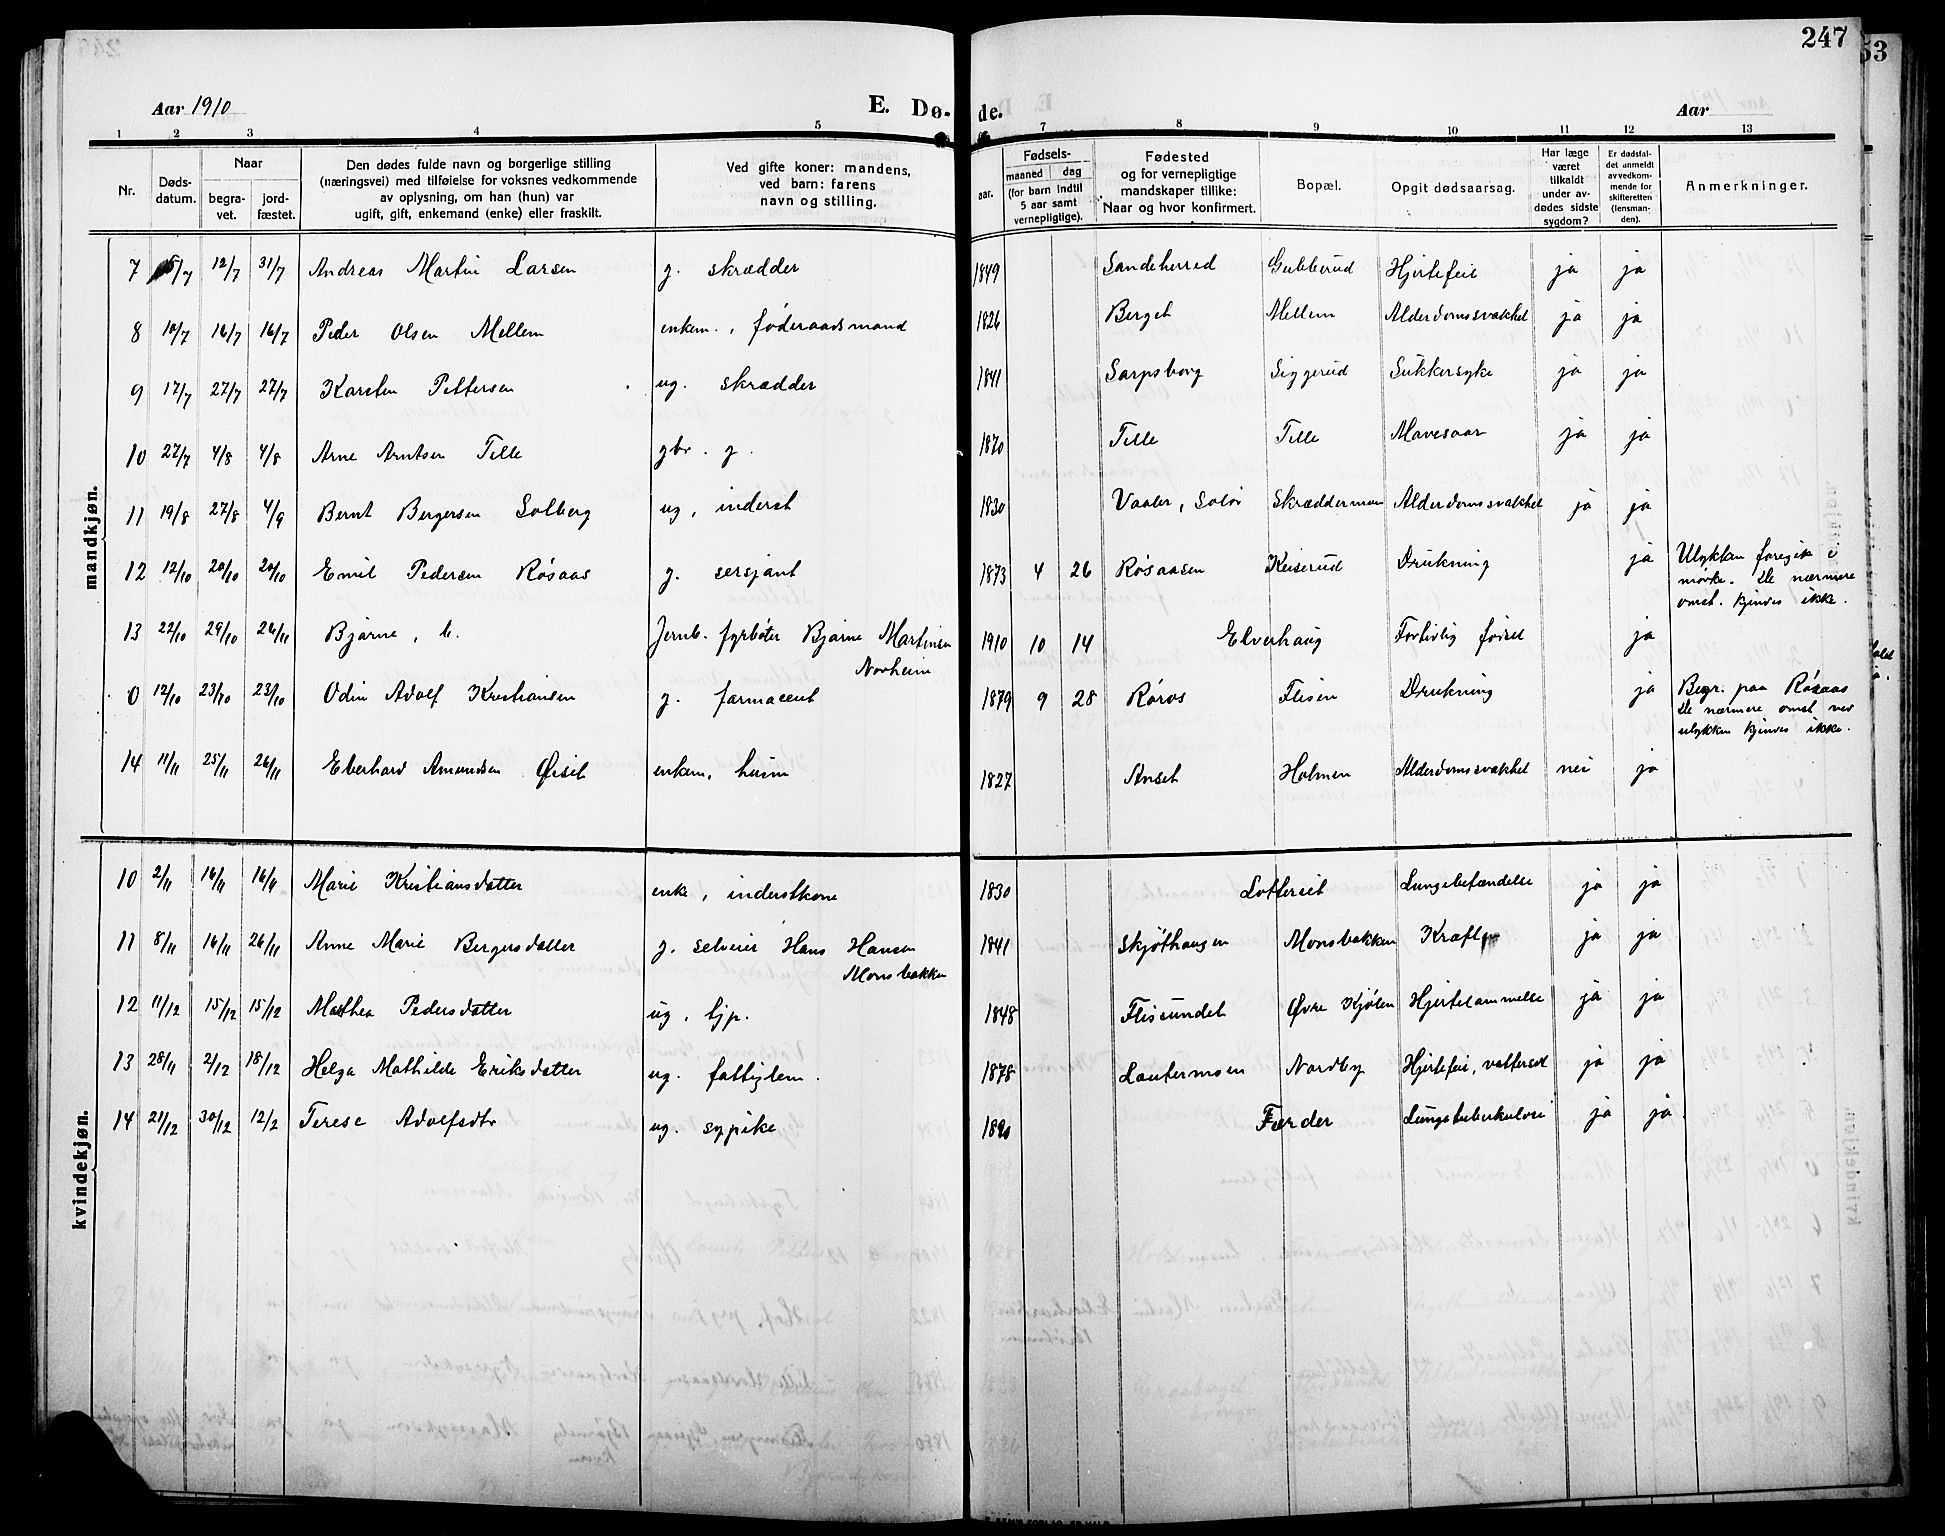 247
53
Aar 1910
E. Dø- de.
Aar
1 2 3 4 5 7 8 9 10 11 12 13
Nr.
Døds-
datum.
Naar
begra-
vet.
jord-
fæstet.
Den dødes fulde navn og borgerlige stilling
(næringsvei) med tilføielse for voksnes vedkommende
av oplysning, om han (hun) var
ugift, gift, enkemand (enke) eller fraskilt.
Ved gifte koner: mandens,
ved barn: farens
navn og stilling.
aar.
Fødsels-
maaned dag
(for barn indtil
5 aar samt
vernepligtige).
Fødested
og for vernepligtige
mandskaper tillike:
Naar og hvor konfirmert.
Bopæl.
Opgit dødsaarsag.
Har læge
været
tilkaldt
under av-
dødes sidste
sygdom?
Er dødsfal-
det anmeldt
av vedkom-
mende for
skifteretten
(lensman-
den).
Anmerkninger.
mandkjøn.
7 5/7 12/7 31/7 Andreas Martin Larsen g. skrædder 1849 Sandeherred Gulberud Hjertefeil ja ja
8 10/7 16/7 16/7 Peder Olsen Mellem enkem., føderaadsmand 1826 Berget Mellem Alderdomssvakhet ja ja
9 17/7 27/7 27/7 Karsten Pettersen ug. skrædder 1841 Sarpsborg Siggerud Sukkersyke ja ja
10 27/7 4/8 4/8 Arne Arntsen Telle gbr. g. 1870 Telle Telle Mavesaar ja ja
11 19/8 27/8 4/9 Bernt Bergersen Solberg ug, inderst 1830 Vaaler, Solør Skrædderman Alderdomssvakhet ja ja
12 12/10 20/10 20/10 Emil Pedersen Røsaas g. sersjant 1873 4 26 Røsaasen Keiserud Drukning ja Ulykken foregik i
mørke. De nærmere
omst. kjendes ikke.
13 22/10 29/10 26/11 Bjarne, b. Jernb. fyrbøter Bjarne Martinsen 1910 10 14 Elverhaug Fortidlig fødsel ja
Norheim
0 12/10 23/10 23/10 Odin Adolf Kristiansen g. farmaceut 1879 9 28 Røros Flisen Drukning ja Begr. paa Røsaas
De nærmere omst ved
ulykken kjendes ikke.
14 11/11 25/11 26/11 Eberhard Amundsen Øiset enkem, husm 1827 Anset Holmen Alderdomssvakhet nei ja
kvindekjøn.
10 2/11 16/11 16/11 Marie Kristiansdatter enke, inderstkone 1830 Lotterset Lungebetændelse ja ja
11 8/11 16/11 26/11 Anne Marie Bergersdatter g. selveier Hans Hansen 1841 Skjøthaugen Monsbakken Kræft ja ja
Monsbakken
12 11/12 15/12 15/12 Mathea Pedersdatter ug. tjp. 1848 Flisundet Øvre Kjølen Hjertelammelse ja ja
13 28/11 2/12 18/12 Helga Mathilde Eriksdatter ug. fattiglem. 1878 Lautermoen Nordby Hjertefeil, vattersot ja ja
14 21/12 30/12 12/2 Terese Adolfsdtr ug. sypike 1890 Færder Lungetuberkulose ja ja